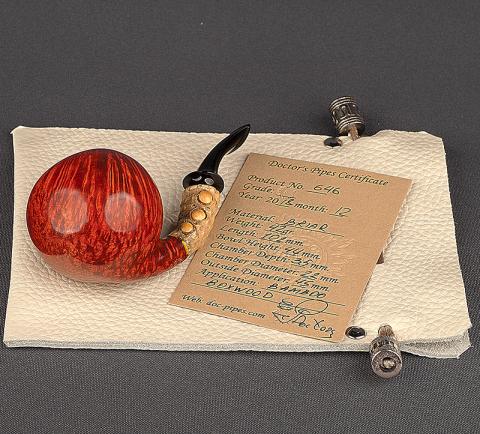 Doctor's Pipes Certificate
Product No. 646
Grade
Year 201 month 12
Material: BRIAR
Weight gr
Length 102 mm
Bowl Height 44 mm
Chamber Depth 35 mm
Chamber Diameter mm
Outside Diameter 45 mm
Application BAMBOO
BOXWOOD
Web: doc-pipes.com